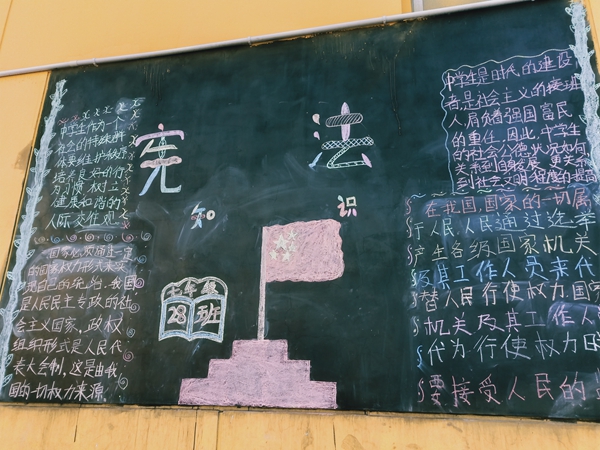 宪法
知识
七年级
28班
中学生作为一个
社会的特殊群
体要维护秩序
培养良好的行
为习惯 树立
健康和谐的
人际交往观
国家必须通过一定
的国家权力形式来实
现自己的统治,我国
是人民民主专政的社
会主义国家,政权
组织形式是人民代
表大会制,这是由我
国的一切权力来源
中学生是时代的建设
者是社会主义的接班
人肩负着强国富民
的重任 因此,中学生
的社会公德状况如何
关系到自身发展 更关系
到社会文明程度的提高
在我国国家的一切属
于人民人民通过选举
产生各级国家机关
及其工作人员来代
替人民行使权力国家
机关及其工作人
代为行使权力
要接受人民的